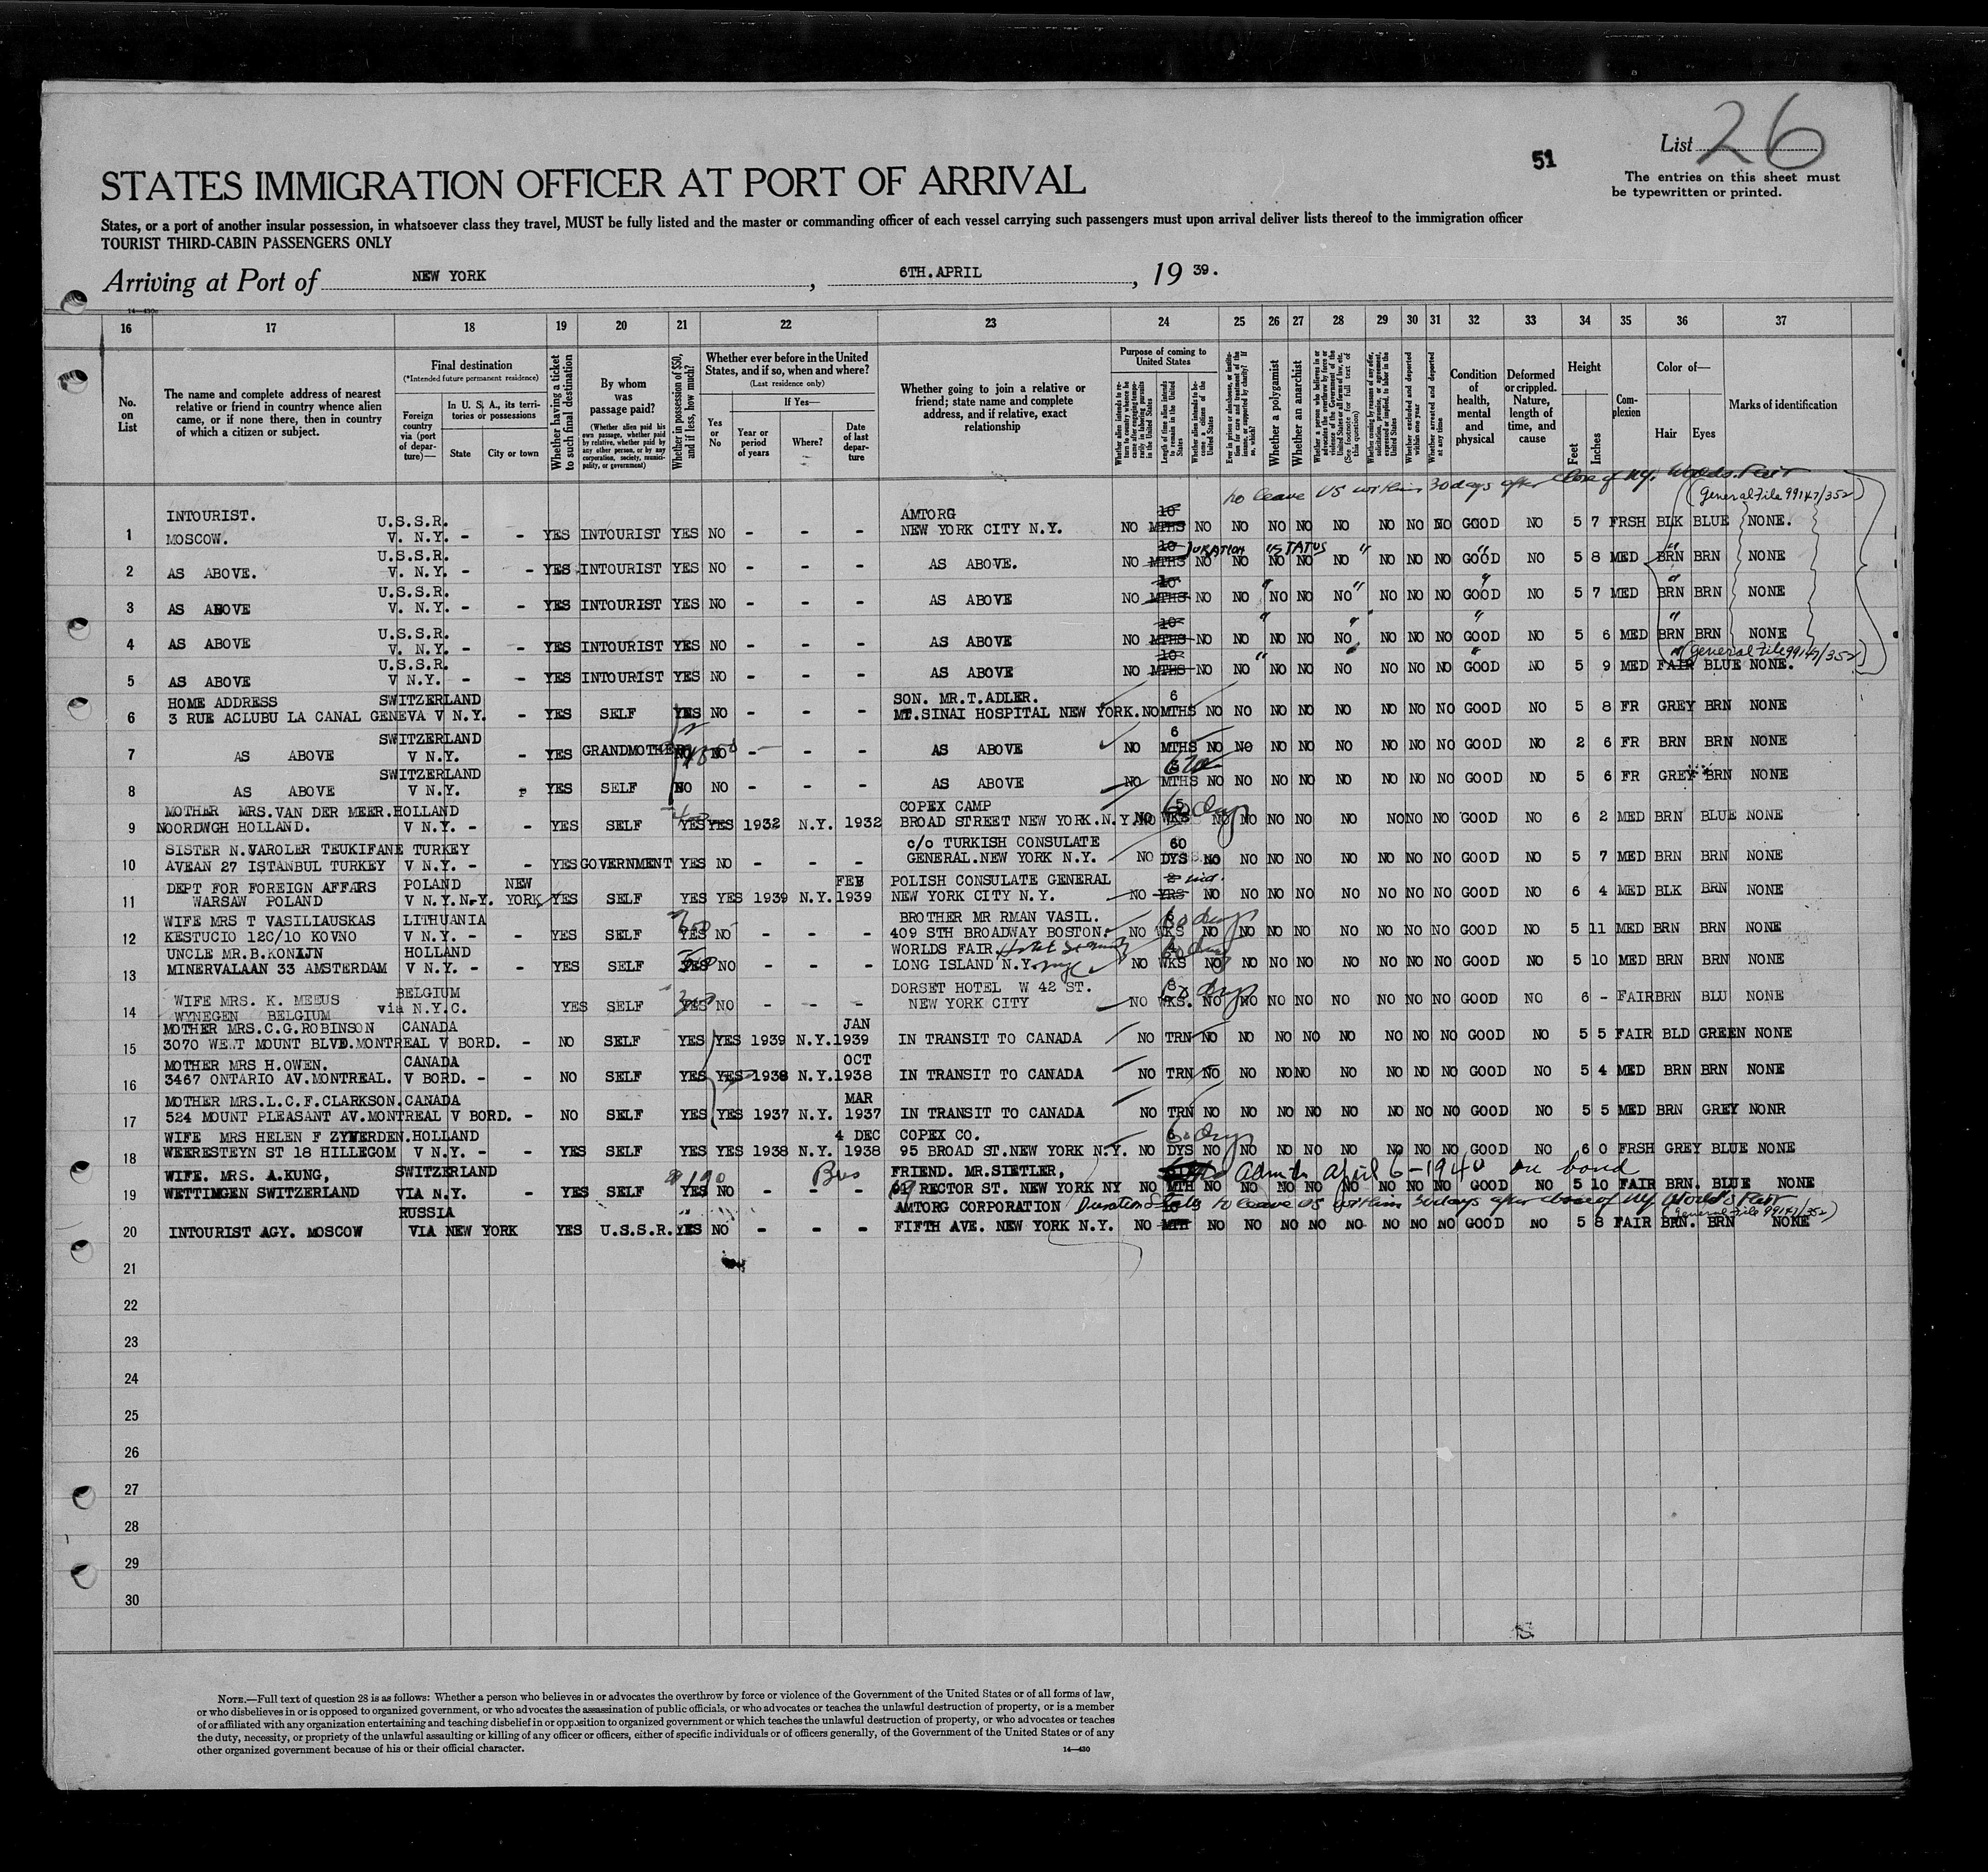 List 26
51
The entries on this sheet must
be typewritten or printed.
STATES IMMIGRATION OFFICER AT PORT OF ARRIVAL
States, or a port of another insular possession, in whatsoever class they travel, MUST be fully listed and the master or commanding officer of each vessel carrying such passengers must upon arrival deliver lists thereof to the immigration officer
TOURIST THIRD-CABIN PASSENGERS ONLY
Arriving at Port of NEW YORK, 6TH.APRIL, 19 39.
14—430
16 17 18 19 20 21 22 23 24 25 26 27 28 29 30 31 32 33 34 35 36 37
No. on List
The name and complete address of nearest relative or friend in country whence alien came, or if none there, then in country of which a citizen or subject.
Final destination
(*Intended future permanent residence)
Foreign country via (port of departure)—
In U. S. A., its territories or possessions
State
City or town
Whether having a ticket to such final destination
By whom was passage paid?
(Whether alien paid his own passage, whether paid by relative, whether paid by any other person, or by any corporation, society, municipality, or government)
Whether in possession of $50, and if less, how much?
Whether ever before in the United States, and if so, when and where?
(Last residence only)
Yes or No
If Yes—
Year or period of years
Where?
Date of last departure
Whether going to join a relative or friend; state name and complete address, and if relative, exact relationship
Purpose of coming to United States
Whether alien intends to return to country whence he came after engaging temporarily in laboring pursuits in the United States
Length of time alien intends to remain in the United States
Whether alien intends to become a citizen of the United States
Ever in prison or almshouse, or institution for care and treatment of the insane, or supported by charity? If so, which?
Whether a polygamist
Whether an anarchist
Whether a person who believes in or advocates the overthrow by force or violence of the Government of the United States or all forms of law, etc. (See footnote for full text of this question)
Whether coming by reasons of any offer, solicitation, promise, or agreement, expressed or implied, to labor in the United States
Whether excluded and deported within one year
Whether arrested and deported at any time
Condition of health, mental and physical
Deformed or crippled. Nature, length of time, and cause
Height
Feet
Inches
Complexion
Color of—
Hair
Eyes
Marks of identification
to leave US within 30 days after close of NY. Worlds Fair
(General File 99147/352)
INTOURIST. U.S.S.R. AMTORG 10
1 MOSCOW. V. N.Y. - - YES INTOURIST YES NO - - - NEW YORK CITY N.Y. NO MTHS NO NO NO NO NO NO NO NO GOOD NO 5 7 FRSH BLK BLUE NONE.
U.S.S.R. 10 DURATION STATUS " " "
2 AS ABOVE. V. N.Y. - - YES INTOURIST YES NO - - - AS ABOVE. NO MTHS NO NO NO NO NO NO NO NO GOOD NO 5 8 MED BRN BRN NONE
U.S.S.R. 10 " " " "
3 AS ABOVE V. N.Y. - - YES INTOURIST YES NO - - - AS ABOVE NO MTHS NO NO NO NO NO NO NO NO GOOD NO 5 7 MED BRN BRN NONE
U.S.S.R. 10 " " " "
4 AS ABOVE V. N.Y. - - YES INTOURIST YES NO - - - AS ABOVE NO MTHS NO NO NO NO NO NO NO NO GOOD NO 5 6 MED BRN BRN NONE
U.S.S.R. 10 " " " " (General File 99147/352)
5 AS ABOVE V N.Y. - - YES INTOURIST YES NO - - - AS ABOVE NO MTHS NO NO NO NO NO NO NO NO GOOD NO 5 9 MED FAIR BLUE NONE.
HOME ADDRESS SWITZERLAND SON. MR.T.ADLER. 6
6 3 RUE ACLUBU LA CANAL GENEVA V N.Y. - YES SELF YES NO - - - MT.SINAI HOSPITAL NEW YORK. NO MTHS NO NO NO NO NO NO NO NO GOOD NO 5 8 FR GREY BRN NONE
SWITZERLAND 6
7 AS ABOVE V N.Y. - YES GRANDMOTHER NO NO - - - AS ABOVE NO MTHS NO NO NO NO NO NO NO NO GOOD NO 2 6 FR BRN BRN NONE
SWITZERLAND
8 AS ABOVE V N.Y. - YES SELF NO NO - - - AS ABOVE NO MTHS NO NO NO NO NO NO NO NO GOOD NO 5 6 FR GREY BRN NONE
MOTHER MRS.VAN DER MEER.HOLLAND COPEX CAMP 60 days
9 NOORDWGH HOLLAND. V N.Y. - - YES SELF YES YES 1932 N.Y. 1932 BROAD STREET NEW YORK.N.Y. NO WKS NO NO NO NO NO NO NO NO GOOD NO 6 2 MED BRN BLUE NONE
SISTER N.VAROLER TEUKIFANE TURKEY c/o TURKISH CONSULATE 60
10 AVEAN 27 ISTANBUL TURKEY V N.Y. - - YES GOVERNMENT YES NO - - - GENERAL.NEW YORK N.Y. NO DYS NO NO NO NO NO NO NO NO GOOD NO 5 7 MED BRN BRN NONE
DEPT FOR FOREIGN AFFARS POLAND NEW FEB POLISH CONSULATE GENERAL 2 ind.
11 WARSAW POLAND V N.Y. N.Y. YORK YES SELF YES YES 1939 N.Y. 1939 NEW YORK CITY N.Y. NO YRS NO NO NO NO NO NO NO NO GOOD NO 6 4 MED BLK BRN NONE
WIFE MRS T VASILIAUSKAS LITHUANIA BROTHER MR RMAN VASIL. 60 days
12 KESTUCIO 12C/10 KOVNO V N.Y. - - YES SELF YES NO - - - 409 STH BROADWAY BOSTON. NO WKS NO NO NO NO NO NO NO NO GOOD NO 5 11 MED BRN BRN NONE
UNCLE MR.B.KONIJN HOLLAND WORLDS FAIR Hotel 60 days
13 MINERVALAAN 33 AMSTERDAM V N.Y. - - YES SELF YES NO - - - LONG ISLAND N.Y. NO WKS NO NO NO NO NO NO NO NO GOOD NO 5 10 MED BRN BRN NONE
BELGIUM DORSET HOTEL W 42 ST. days
14 WIFE MRS. K. MEEUS WYNEGEN BELGIUM via N.Y.C. YES SELF 300 YES NO - - - NEW YORK CITY NO WKS. NO NO NO NO NO NO NO NO GOOD NO 6 - FAIR BRN BLU NONE
MOTHER MRS.C.G.ROBINSON CANADA JAN
15 3070 WEST MOUNT BLVD.MONTREAL V BORD. - NO SELF YES YES 1939 N.Y. 1939 IN TRANSIT TO CANADA NO TRN NO NO NO NO NO NO NO NO GOOD NO 5 5 FAIR BLD GREEN NONE
MOTHER MRS H.OWEN. CANADA OCT
16 3467 ONTARIO AV.MONTREAL. V BORD. - - NO SELF YES YES 1938 N.Y. 1938 IN TRANSIT TO CANADA NO TRN NO NO NO NO NO NO NO NO GOOD NO 5 4 MED BRN BRN NONE
MOTHER MRS.L.C.F.CLARKSON.CANADA MAR
17 524 MOUNT PLEASANT AV.MONTREAL V BORD. - NO SELF YES YES 1937 N.Y. 1937 IN TRANSIT TO CANADA NO TRN NO NO NO NO NO NO NO NO GOOD NO 5 5 MED BRN GREY NONR
WIFE MRS HELEN F ZYVERDEN.HOLLAND 4 DEC COPEX CO. 60 days
18 WEERESTEYN ST 18 HILLEGOM V N.Y. - YES SELF YES YES 1938 N.Y. 1938 95 BROAD ST.NEW YORK N.Y. NO DYS NO NO NO NO NO NO NO NO GOOD NO 6 0 FRSH GREY BLUE NONE
WIFE. MRS. A.KUNG, SWITZERLAND $190 Bus FRIEND. MR.SIETLER, Admit to April 6-1940 on bond
19 WETTINGEN SWITZERLAND VIA N.Y. - YES SELF YES NO - - - RECTOR ST. NEW YORK NY NO MTH NO NO NO NO NO NO NO NO GOOD NO 5 10 FAIR BRN. BLUE NONE
RUSSIA AMTORG CORPORATION Duration Status to leave US within 30 days after close of NY World's Fair (General File 99147/352)
20 INTOURIST AGY. MOSCOW VIA NEW YORK YES U.S.S.R. YES NO - - - FIFTH AVE. NEW YORK N.Y. NO MTH NO NO NO NO NO NO NO NO GOOD NO 5 8 FAIR BRN. BRN NONE
21
22
23
24
25
26
27
28
29
30
NOTE.—Full text of question 28 is as follows: Whether a person who believes in or advocates the overthrow by force or violence of the Government of the United States or of all forms of law,
or who disbelieves in or is opposed to organized government, or who advocates the assassination of public officials, or who advocates or teaches the unlawful destruction of property, or is a member
of or affiliated with any organization entertaining and teaching disbelief in or opposition to organized government or which teaches the unlawful destruction of property, or who advocates or teaches
the duty, necessity, or propriety of the unlawful assaulting or killing of any officer or officers, either of specific individuals or of officers generally, of the Government of the United States or of any
other organized government because of his or their official character.
14—430